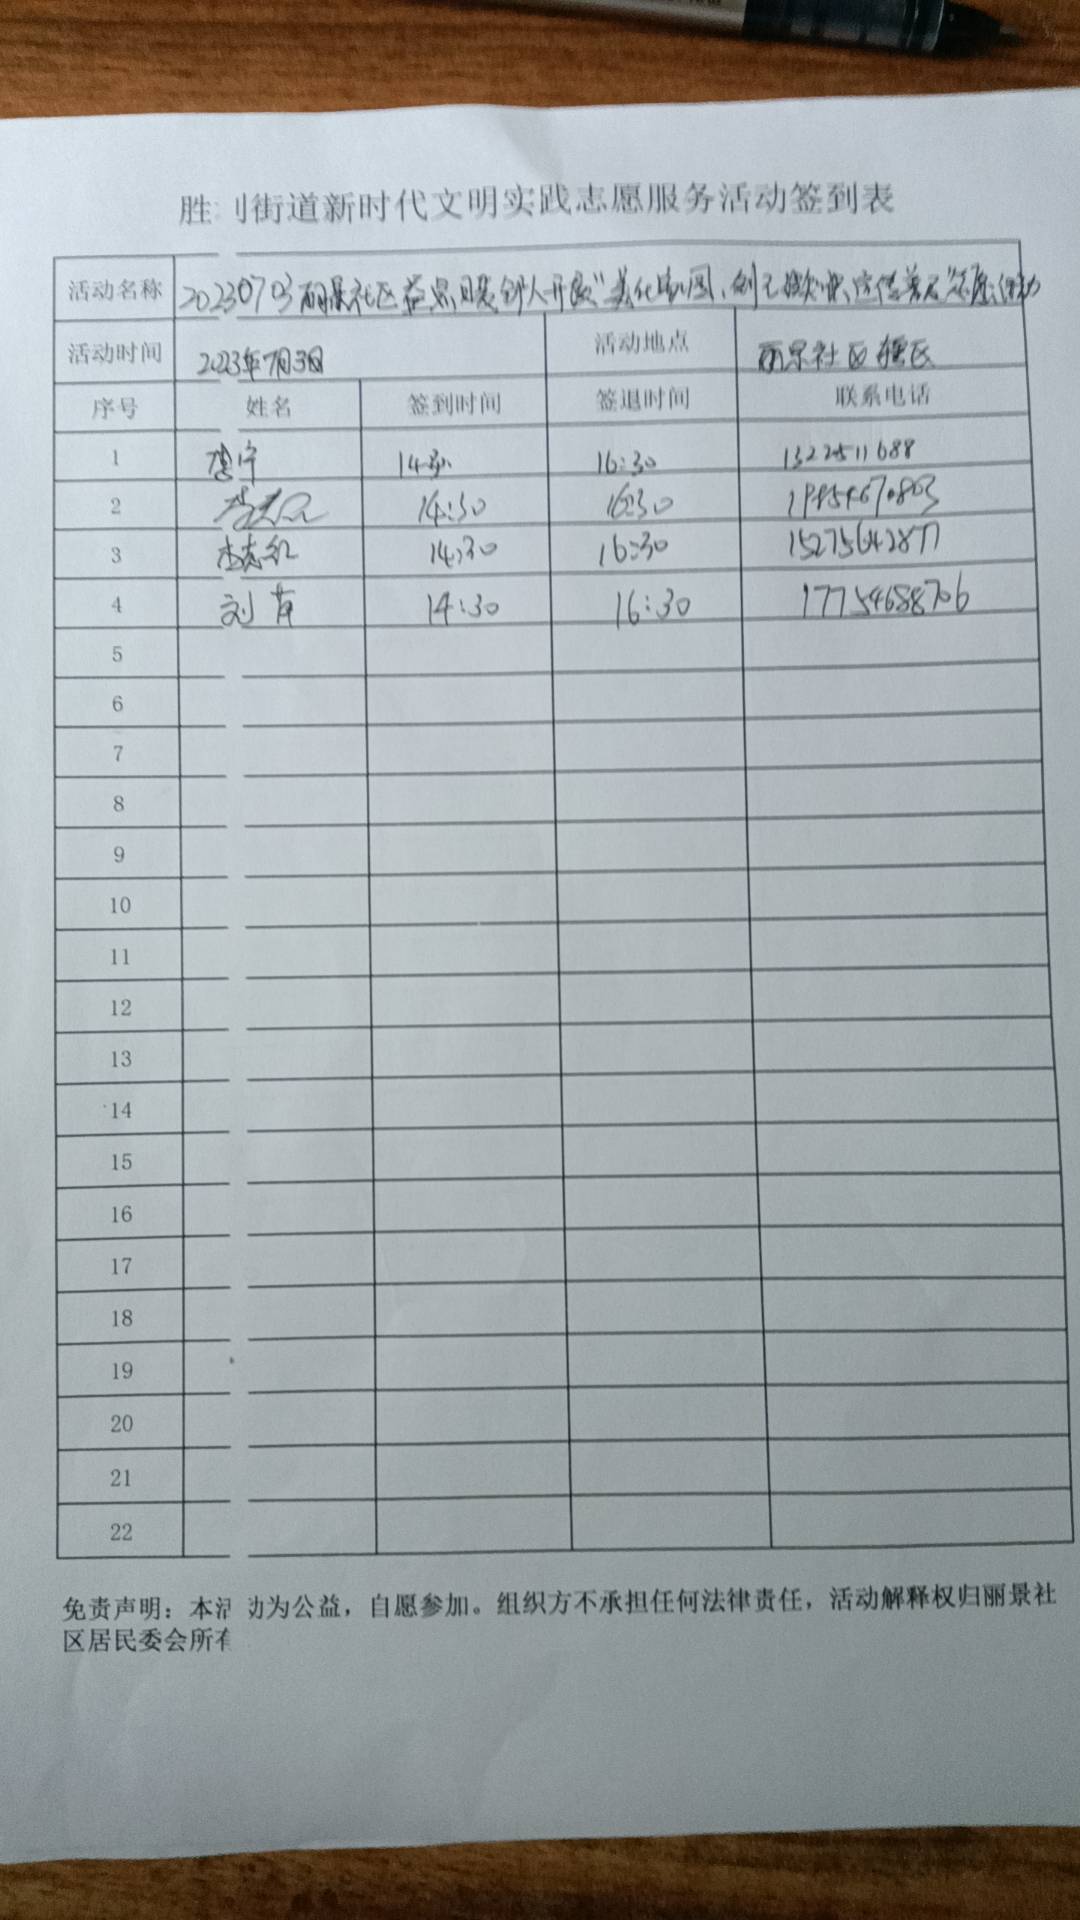 胜利街道新时代文明实践志愿服务活动签到表
活动名称 20230703丽景社区益点 开展"美化
活动时间 2023年7月3日 活动地点 丽景社区辖区
序号 姓名 签到时间 签退时间 联系电话
1 14:30 16:30 13225511688
2 14:30 16:30
3 李志红 14:30 16:30 15275642877
4 刘 14:30 16:30 17754688706
5
6
7
8
9
10
11
12
13
14
15
16
17
18
19
20
21
22
免责声明：本活动为公益，自愿参加。组织方不承担任何法律责任，活动解释权归丽景社
区居民委会所有